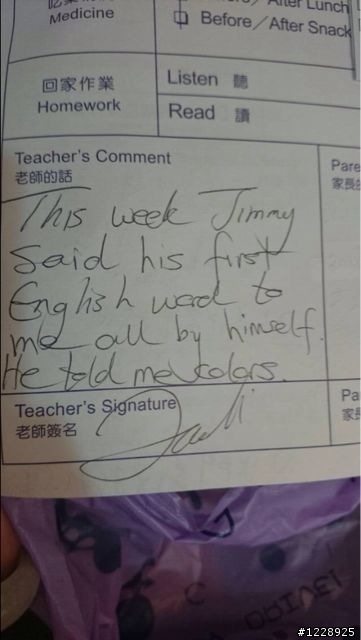 Medicine
After Lunch
□ Before／After Snack
回家作業
Homework
Listen 聽
Read 讀
Teacher's Comment
老師的話
This week Jimmy
Said his first
English word to
me all by himself.
He told me colors.
Teacher's Signature
老師簽名
#1228925